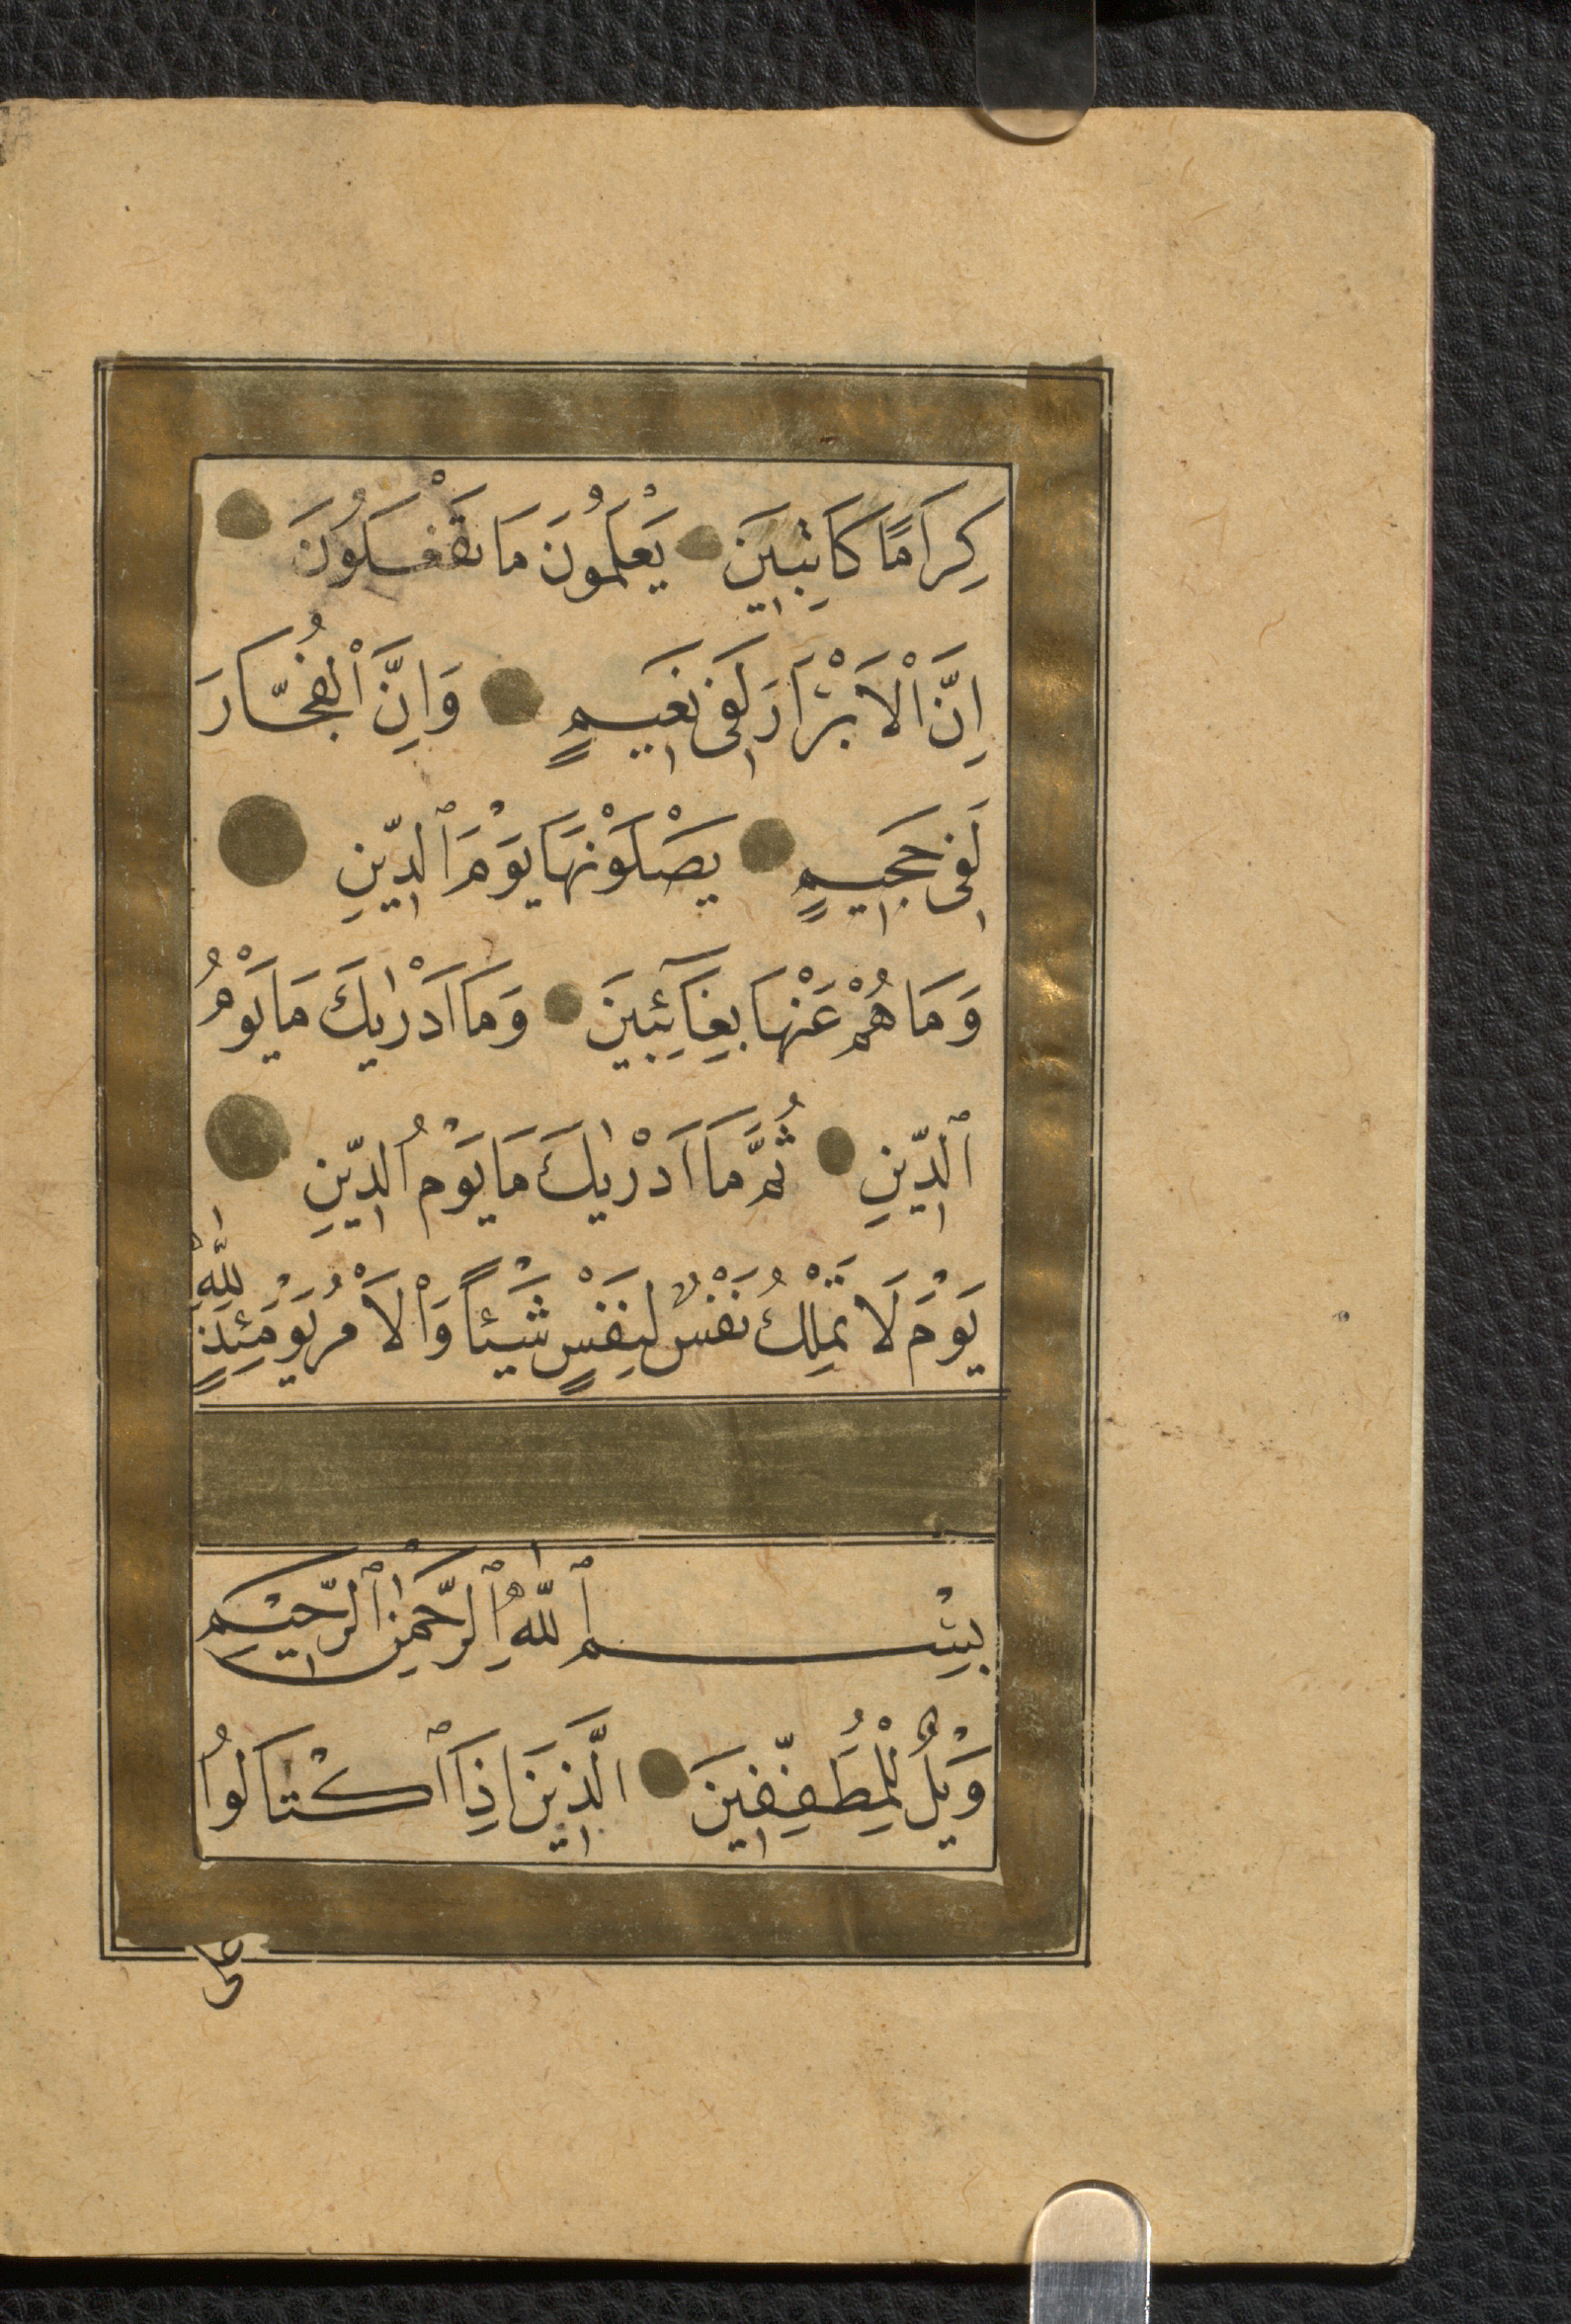 كِرَامًا كَاتِبِينَ يَعْلَمُونَ مَا تَفْعَلُونَ
اِنَّ الْاَبْرَارَ لَفِى نَعِيمٍ وَاِنَّ الْفُجَّارَ
لَفِى جَحِيمٍ يَصْلَوْنَهَا يَوْمَ ٱلدِّينِ
وَمَا هُمْ عَنْهَا بِغَآئِبِينَ وَمَا اَدْرٰيكَ مَا يَوْمُ
ٱلدِّينِ ثُمَّ مَا اَدْرٰيكَ مَا يَوْمُ الدِّينِ
يَوْمَ لَا تَمْلِكُ نَفْسٌ لِنَفْسٍ شَيْئًا وَالْاَمْرُ يَوْمَئِذٍ لِلّٰهِ
بِسْمِ ٱللّٰهِ ٱلرَّحْمٰنِ ٱلرَّحِيمِ
وَيْلٌ لِلْمُطَفِّفِينَ الَّذِينَ اِذَا ٱكْتَالُوا
على